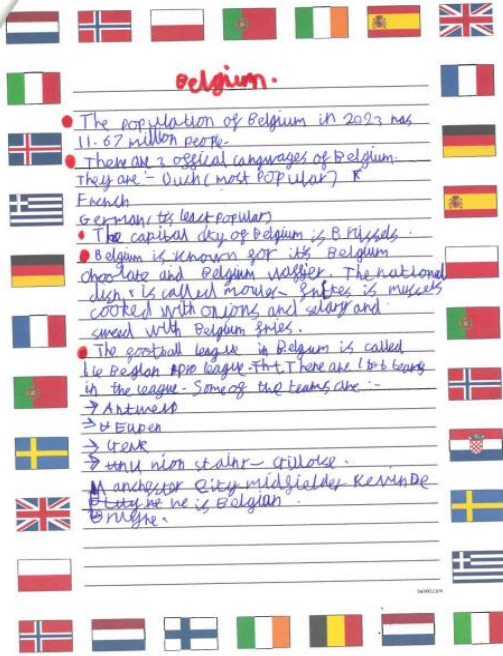 Belgium.
The population of Belgium in 2023 has
11.67 million people.
There are 3 offical languages of Belgium.
They are - Duch (most popular)
French
German (its least popular)
The capital city of Belgium is Brussels.
Belgium is known for its Belgium
chocolate and Belgium waffier. The national
dish, is called moules frites is mussels
cooked with onions and selary and
sweed with Belgium fries.
The football league in Belgium is called
league There are 16 teams
in the league - Some of the teams are :-
→ Antwerp
→ Eupen
→ Genk
→ nion
Manchester City midfielder Kevin De
he is Belgian